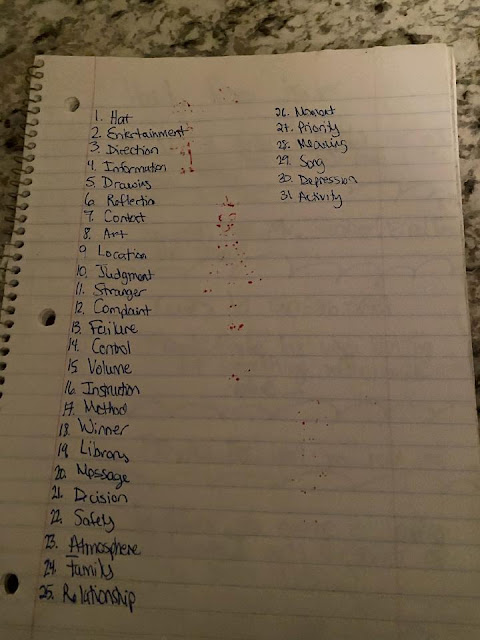 1. Hat
2. Entertainment
3. Direction
4. Information
5. Drawing
6. Reflection
7. Contact
8. Art
9. Location
10. Judgment
11. Stranger
12. Complaint
13. Failure
14. Control
15. Volume
16. Instruction
17. Method
18. Winner
19. Library
20. Message
21. Decision
22. Safety
23. Atmosphere
24. Family
25. Relationship
26. Moment
27. Priority
28. Meaning
29. Song
30. Depression
31 Activity